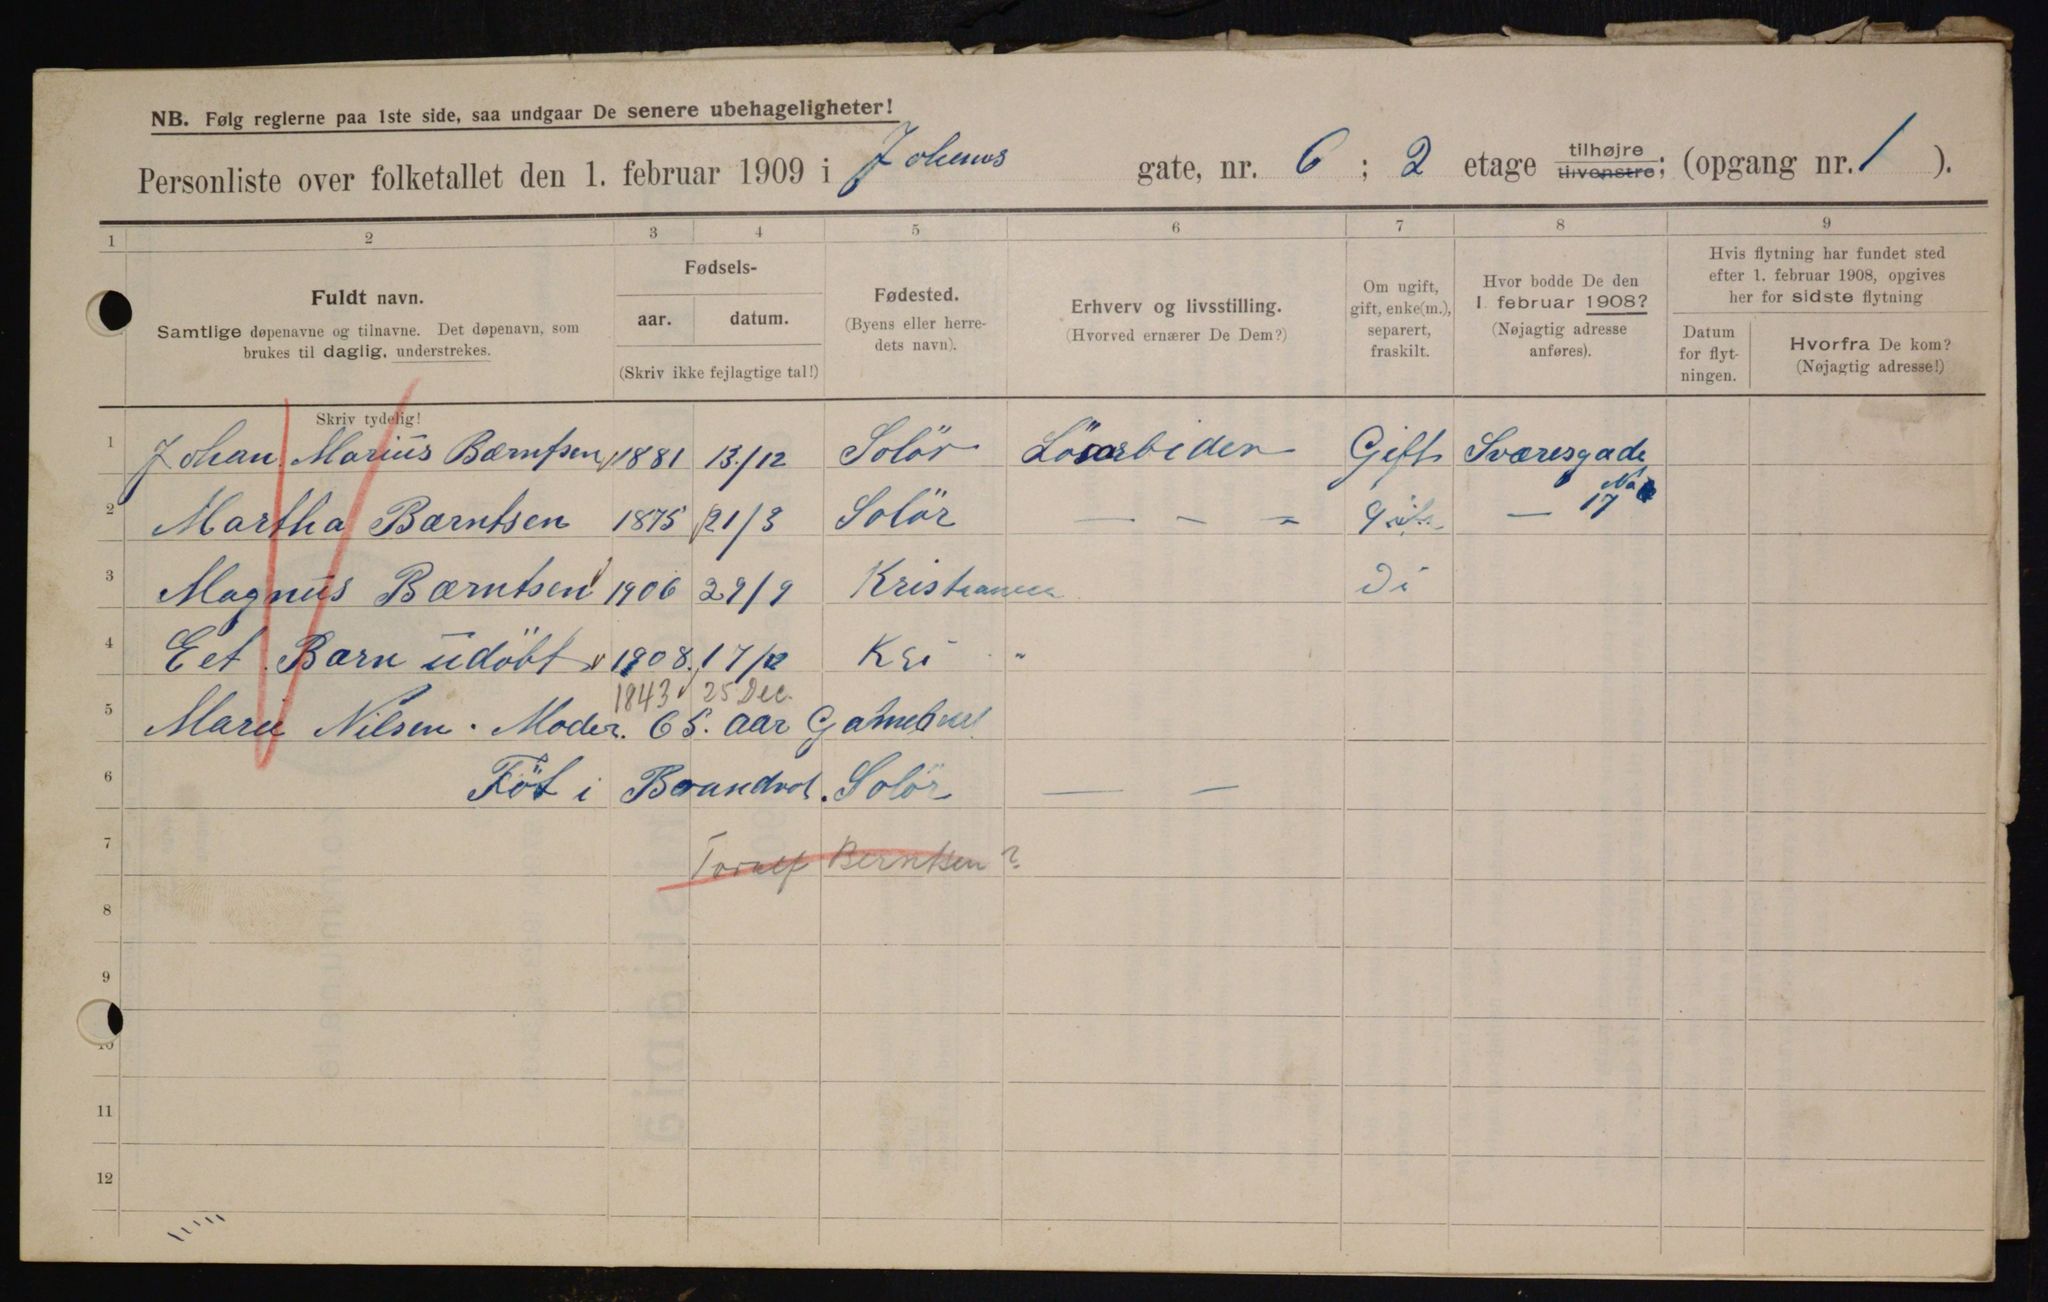 NB. Følg reglerne paa 1ste side, saa undgaar De senere ubehageligheter!
Personliste over folketallet den 1. februar 1909 i Johnns gate, nr. 6 ; 2 etage tilhøjre tilvenstre; (opgang nr. 1 ).
1 2 3 4 5 6 7 8 9
Fuldt navn.
Samtlige døpenavne og tilnavne. Det døpenavn, som
brukes til daglig, understrekes.
Skriv tydelig!
Fødsels-
aar. datum.
(Skriv ikke fejlagtige tal!)
Fødested.
(Byens eller herre-
dets navn).
Erhverv og livsstilling.
(Hvorved ernærer De Dem?)
Om ugift,
gift, enke(m.),
separert,
fraskilt.
Hvor bodde De den
1. februar 1908?
(Nøjagtig adresse
anføres).
Hvis flytning har fundet sted
efter 1. februar 1908, opgives
her for sidste flytning
Datum
for flyt-
ningen.
Hvorfra De kom?
(Nøjagtig adresse!)
1 Johan Marius Bærntsen 1881 13/12 Solör Lösarbider Gift Sværesgade
No 17
2 Martha Bærntsen 1875 21/3 Solör — - = Gift —
3 Magnus Bærntsen 1906 29/9 Kristiania Di
4 Eet Barn udöbt 1908. 17/12 Kri "
1843 25 Dec.
5 Marie Nilsen. Moder. 65. aar Gammel
6 Föt i Brandvol. Solör — —
7 Toralf Berntsen?
8
9
10
11
12